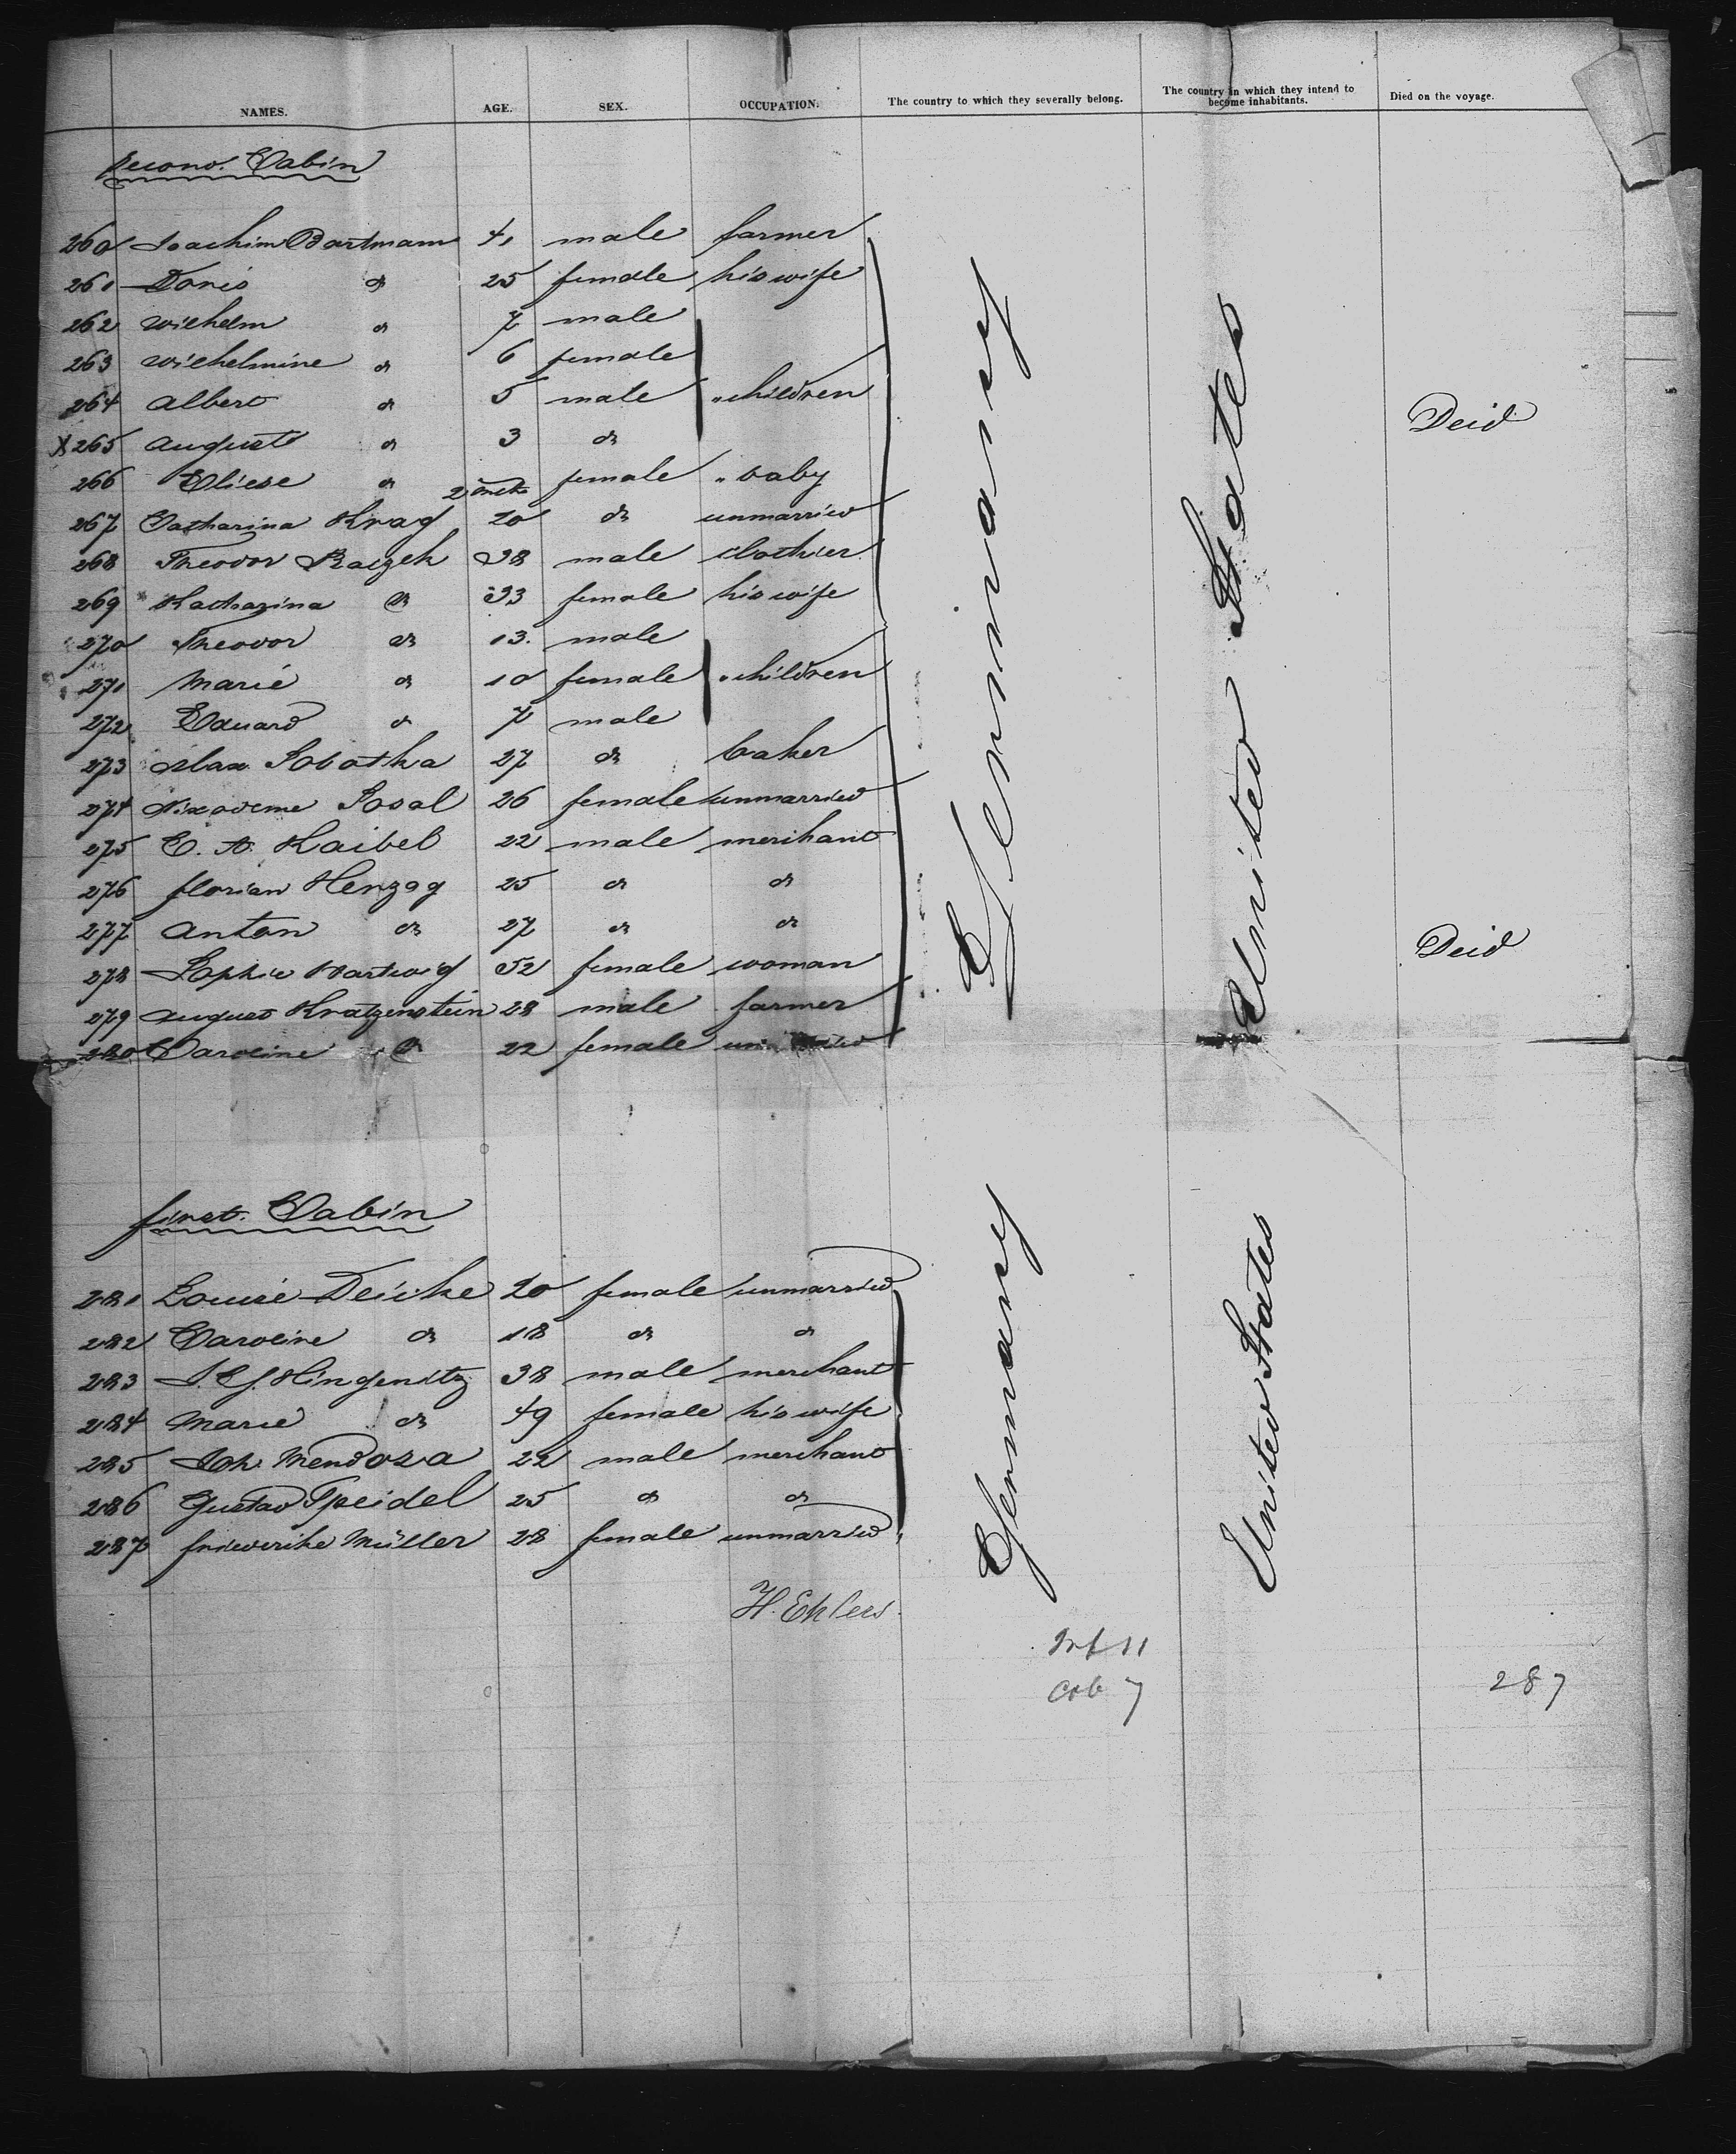 NAMES. AGE. SEX. OCCUPATION. The country to which they severally belong. The country in which they intend to become inhabitants. Died on the voyage.
Second. Cabin
260 Joachim Bartmann 41 male farmer
261 Doris do 25 female his wife
262 Wilhelm do 7 male
263 Wilhelmine do 6 female
264 Albert do 5 male " children
X 265 August do 3 do Deid
266 Eliese do 2 month female " baby
267 Catharina Krag 20 do unmarried
268 Theodor Raczek 38 male clothier
269 Katharina do 33 female his wife
270 Theodor do 13. male
271 Marie do 10 female " children
272 Eduard do 7 male
273 Max Sobotka 27 do baker
274 Sosal 26 female unmarried
275 C. A. Kaibel 22 male merchant
276 Florian Herzog 25 do do
277 Anton do 27 do do
278 Sophie Hartwig 52 female woman Deid
279 August Kratzenstein 28 male farmer
280 Caroline do 22 female unmarried
Germany
United States
first. Cabin
281 Louise Deicke 20 female unmarried
282 Caroline do 18 do do
283 J. G. Hingenitz 38 male merchant
284 Marie do 49 female his wife
285 Joh. Mendoza 22 male merchant
286 Gustav Speidel 25 do do
287 Friederike Müller 28 female unmarried
Germany
United States
H. Ehlers.
Inf 11
Cab 7
287